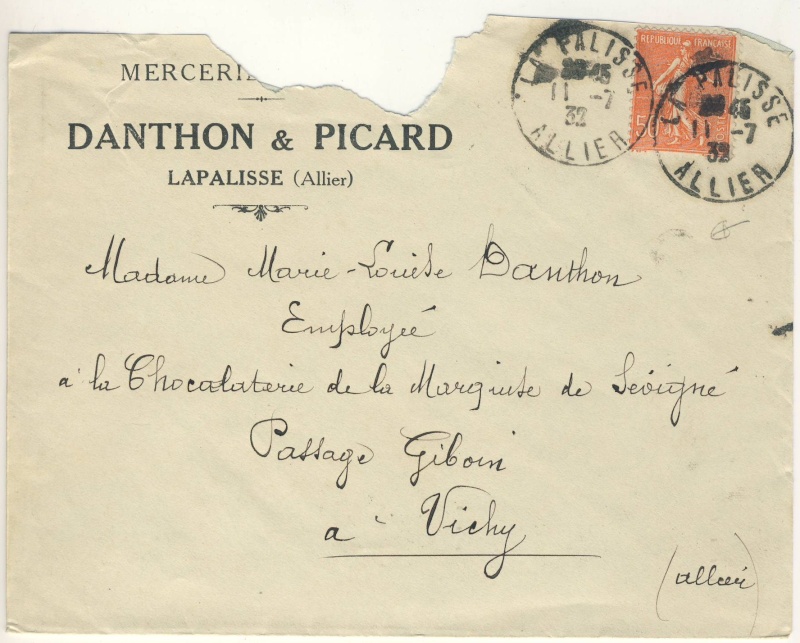 MERCERIE
DANTHON & PICARD
LAPALISSE (Allier)
LA PALISSE
45
11 -7
32
ALLIER
REPUBLIQUE FRANÇAISE
50
POSTES
LA PALISSE
45
11 -7
32
ALLIER
Madame Marie-Louise Danthon
Employée
à la Chocolaterie de la Marquise de Sévigné
Passage Giboin
a Vichy
(allier)